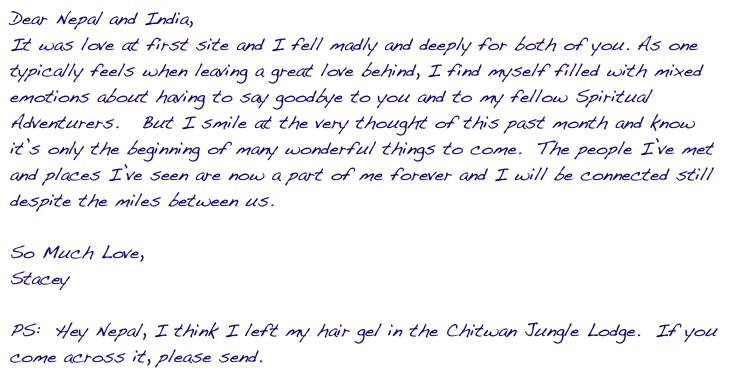 Dear Nepal and India,
It was love at first site and I fell madly and deeply for both of you. As one
typically feels when leaving a great love behind, I find myself filled with mixed
emotions about having to say goodbye to you and to my fellow Spiritual
Adventurers.  But I smile at the very thought of this past month and know
it's only the beginning of many wonderful things to come.  The people I've met
and places I've seen are now a part of me forever and I will be connected still
despite the miles between us.

So Much Love,
Stacey

PS:  Hey Nepal, I think I left my hair gel in the Chitwan Jungle Lodge.  If you
come across it, please send.